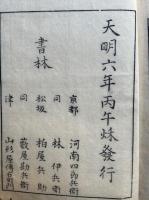 天明六年丙午秌發行
書林
京都 河南四郎兵衛
同 林伊兵衛
松坂 柏屋兵助
同 藪屋勘兵衛
津 山形屋傳右衛門